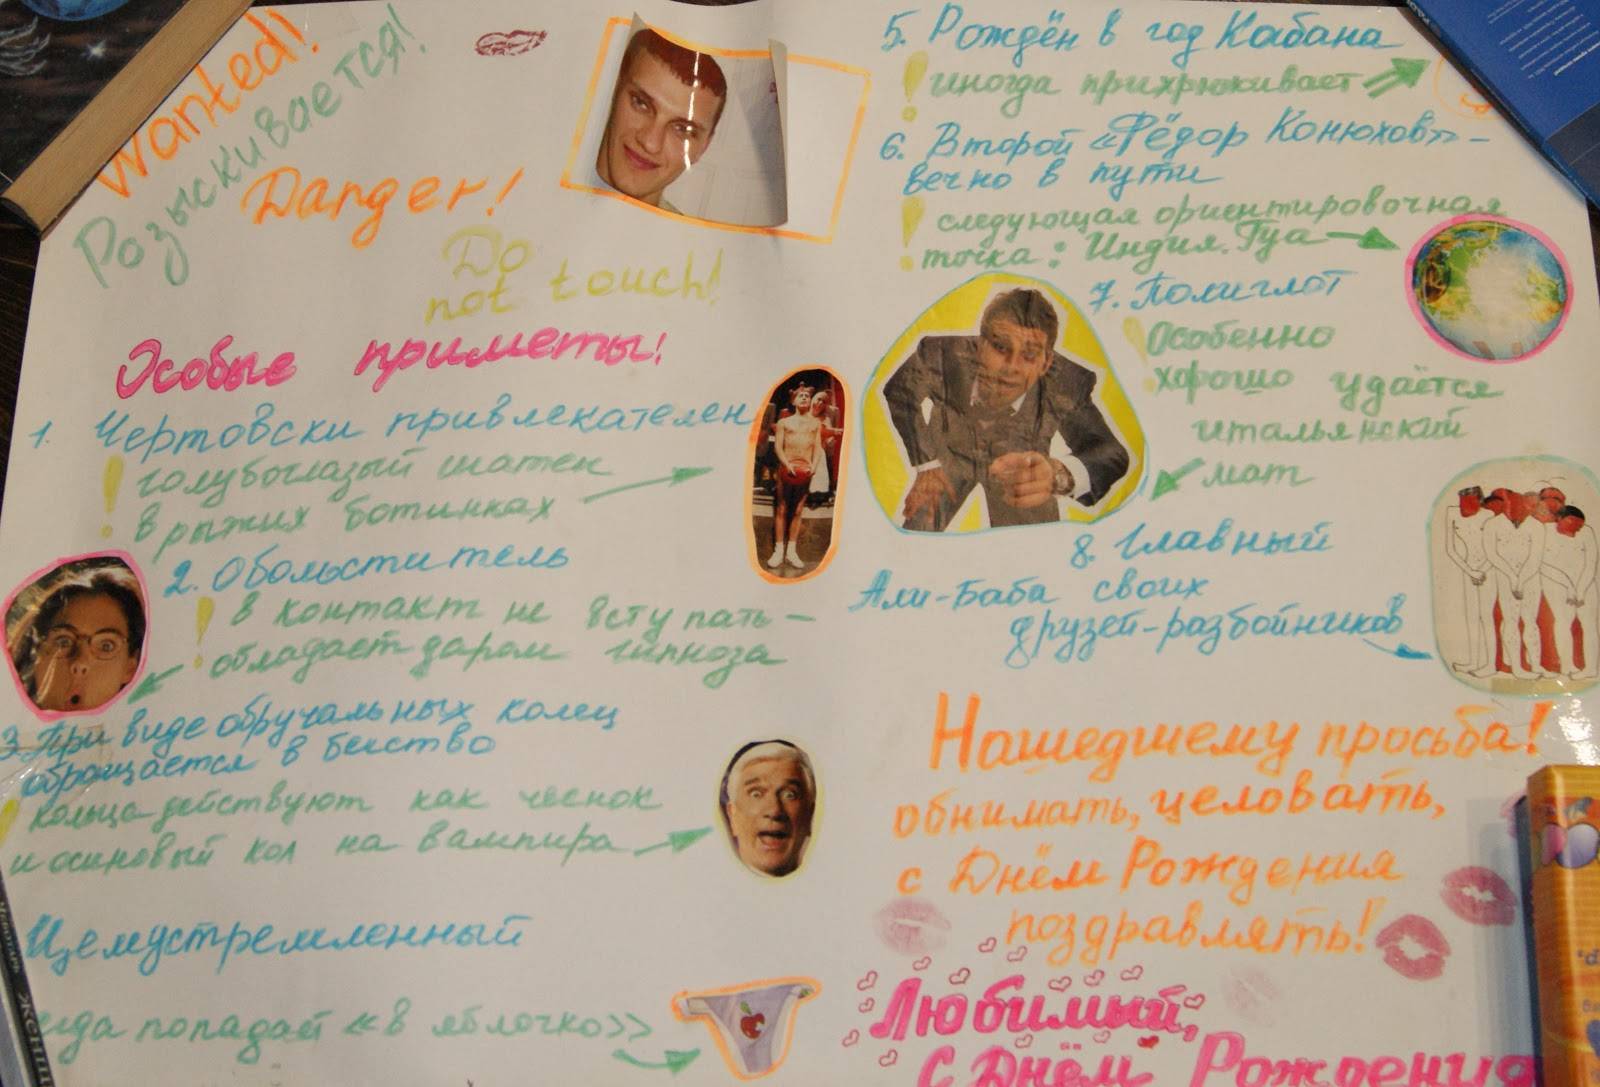 Wanted!
Розыскивается!
Danger!
Do
not touch!
Особые приметы!
1. Чертовски привлекателен
! голубоглазый шатен
в рыжих ботинках
2. Обольститель
! в контакт не вступать –
обладает даром гипноза
3. При виде обручальных колец
обращается в бегство
! кольца действуют как чеснок
и осиновый кол на вампира
Целеустремленный
попадает «в яблочко»
5. Рождён в год Кабана
! иногда прихрюкивает
6. Второй «Фёдор Конюхов» –
вечно в пути
! следующая ориентировочная
точка: Индия. Гуа
7. Полиглот
! Особенно
хорошо удаётся
итальянский
мат
8. Главный
Али-Баба своих
друзей-разбойников
Нашедшему просьба!
обнимать, целовать,
с Днём Рождения
поздравлять!
Любимый,
с Днём Рождения